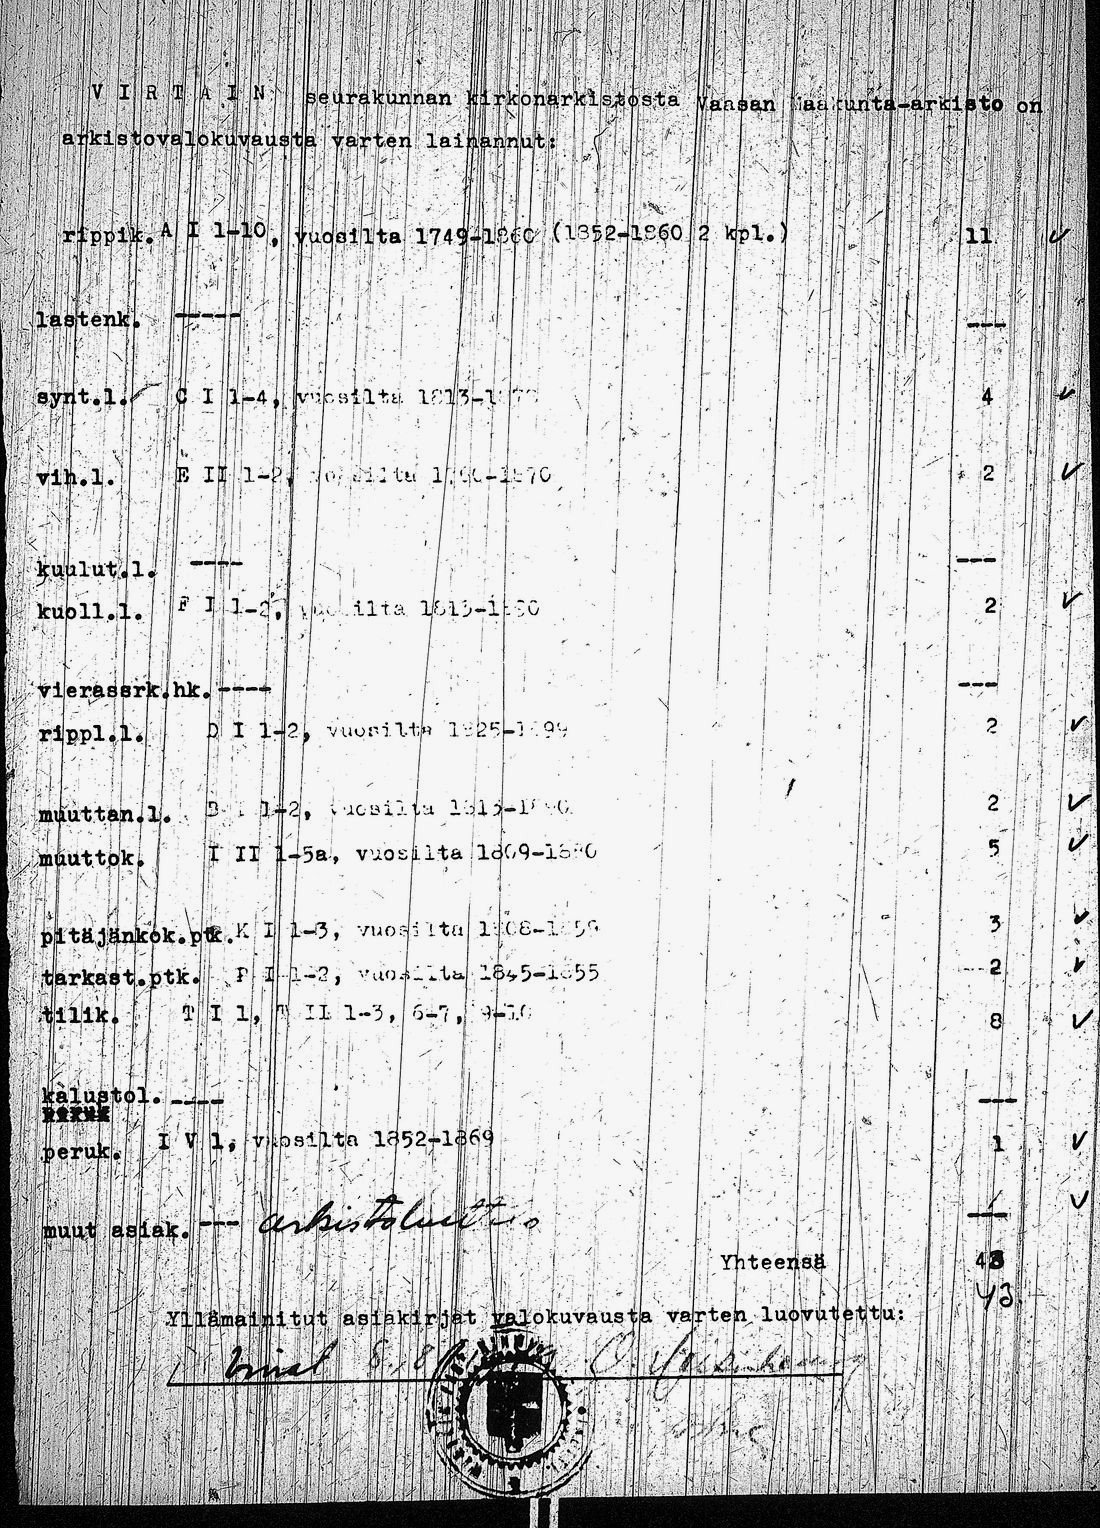 V I R T A I N seurakunnan kirkonarkistosta Vaasan maakunta-arkisto on
arkistovalokuvausta varten lainannut:
rippik. A I 1-10, vuosilta 1749-1860 (1852-1860 2 kpl.) 11 ✓
lastenk. ----- ---
synt.l. C I 1-4, vuosilta 4 ✓
vih.l. E II 1-2, vuosilta 2 ✓
kuulut.l. ---- ---
kuoll.l. F I 1-2, vuosilta 2 ✓
vierassrk.hk. ---- ---
rippl.l. D I 1-2, vuosilta 2 ✓
muuttan.l. B I 1-2, vuosilta 2 ✓
muuttok. I II 1-5a, vuosilta 5 ✓
pitäjänkok.ptk. K I 1-3, vuosilta 3 ✓
tarkast.ptk. P I 1-2, vuosilta 1845-1855 2 ✓
tilik. T I 1, T II 1-3, 6-7, 9-10 8 ✓
kalustol. ---- ---
peruk. I V 1, vuosilta 1852-1869 1 ✓
muut asiak. --- arkistoluettelo ✓
Yhteensä
43
Yllämainitut asiakirjat valokuvausta varten luovutettu: